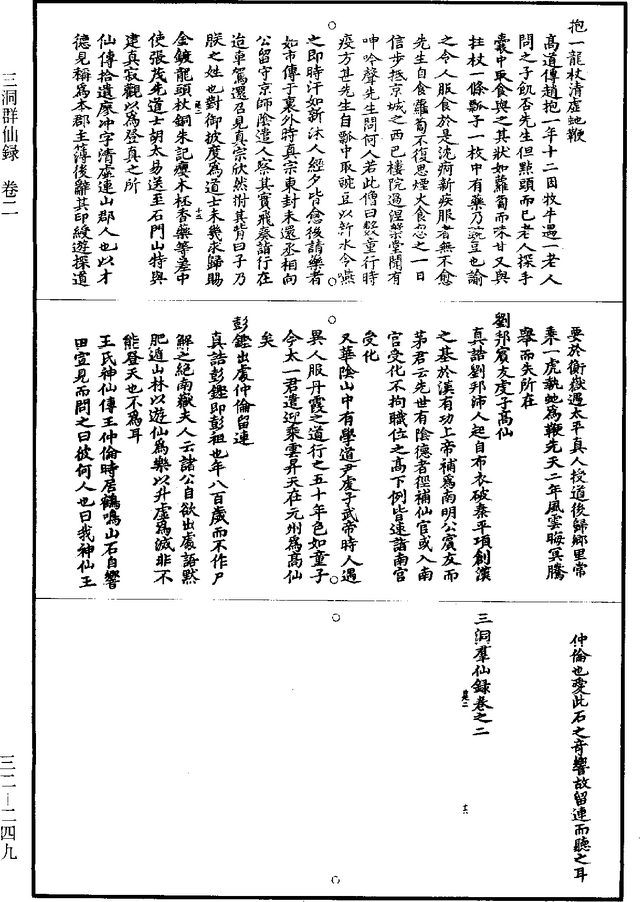 抱一龍杖清虛虵鞭
高道傳趙抱一年十二因牧牛遇一老人
問之子飢否先生但點頭而已老人探手
囊中取食與之其狀如蘿蔔而味甘又與
拄杖一條瓢子一枚中有藥乃豌豆也諭
之令人服食於是沈痾新疾服者無不愈
先生自食蘿蔔不復思煙火食忽之一日
信步抵京城之西已棲院過涅槃堂聞有
呻吟聲先生問何人若此僧曰數童行時
疫方甚先生自瓢中取豌豆以新水令嚥
之即時汗如新沐人經夕皆愈後請藥者
如市傳于裏外時真宗東封未還丞相向
公留守京師陰遣人察其實飛奏諸行在
迨車駕還召見真宗欣然拊其背曰子乃
朕之姓也對御披度為道士未幾求歸賜
金鍍龍頭杖銅朱記癭木柸香藥等差中
使張茂先道士胡太易送至石門山特與
建真寂觀以為登真之所
仙傳拾遺廖冲字清虛連山郡人也以才
德見稱為本郡主簿後辭其印綬遊探道
要於衡嶽遇太平真人授道後歸鄉里常
乘一虎執虵為鞭先天二年風雲晦冥騰
舉而失所在
劉邦賓友虔子高仙
真誥劉邦沛人起自布衣破秦平項創漢
之基於漢有功上帝補為南明公賓友而
茅君云先世有陰德者徑補仙官或入南
宮受化不拘職位之高下例皆速詣南宮
受化
又華陰山中有學道尹虔子武帝時人遇
異人服丹霞之道行之五十年色如童子
今太一君遣迎乘雲昇天在元州為高仙
矣
彭鏗出處仲倫留連
真誥彭鏗即彭祖也年八百歲而不作尸
解之絕南嶽夫人云諸公自欲出處語默
肥遁山林以遊仙為樂以升虛為滅非不
能登天也不為耳
王氏神仙傳王仲倫時居鶴鳴山石自響
田宣見而問之曰彼何人也曰我神仙王
仲倫也愛此石之音響故留連而聽之耳
三洞羣仙録卷之二
三洞群仙録 卷二
三二—二四九